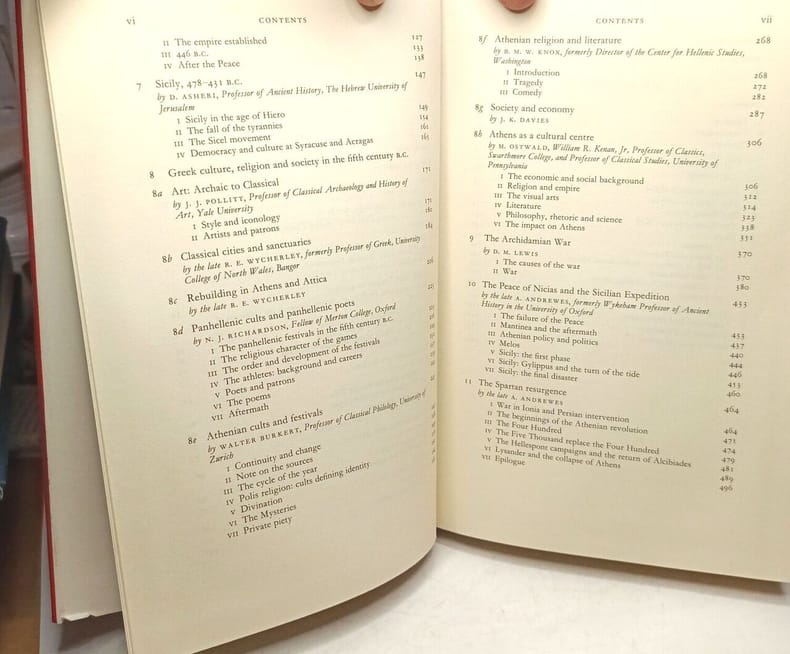 vi
CONTENTS
II The empire established 127
III 446 B.C. 133
IV After the Peace 138
7 Sicily, 478–431 B.C. 147
by D. ASHERI, Professor of Ancient History, The Hebrew University of
Jerusalem
I Sicily in the age of Hiero 149
II The fall of the tyrannies 154
III The Sicel movement 161
IV Democracy and culture at Syracuse and Acragas 165
8 Greek culture, religion and society in the fifth century B.C.
8a Art: Archaic to Classical 171
by J. J. POLLITT, Professor of Classical Archaeology and History of
Art, Yale University
I Style and iconology 171
II Artists and patrons
8b Classical cities and sanctuaries 184
by the late R. E. WYCHERLEY, formerly Professor of Greek, University
College of North Wales, Bangor
8c Rebuilding in Athens and Attica 206
by the late R. E. WYCHERLEY
8d Panhellenic cults and panhellenic poets
by N. J. RICHARDSON, Fellow of Merton College, Oxford
I The panhellenic festivals in the fifth century B.C.
II The religious character of the games
III The order and development of the festivals
IV The athletes: background and careers
V Poets and patrons
VI The poems
VII Aftermath
8e Athenian cults and festivals
by WALTER BURKERT, Professor of Classical Philology, University of
Zurich
I Continuity and change
II Note on the sources
III The cycle of the year
IV Polis religion: cults defining identity
V Divination
VI The Mysteries
VII Private piety
CONTENTS
vii
8f Athenian religion and literature 268
by B. M. W. KNOX, formerly Director of the Center for Hellenic Studies,
Washington
I Introduction 268
II Tragedy 272
III Comedy 282
8g Society and economy 287
by J. K. DAVIES
8h Athens as a cultural centre 306
by M. OSTWALD, William R. Kenan, Jr, Professor of Classics,
Swarthmore College, and Professor of Classical Studies, University of
Pennsylvania
I The economic and social background 306
II Religion and empire 312
III The visual arts 314
IV Literature 323
V Philosophy, rhetoric and science 338
VI The impact on Athens 351
9 The Archidamian War 370
by D. M. LEWIS
I The causes of the war 370
II War 380
10 The Peace of Nicias and the Sicilian Expedition 433
by the late A. ANDREWES, formerly Wykeham Professor of Ancient
History in the University of Oxford
I The failure of the Peace 433
II Mantinea and the aftermath 437
III Athenian policy and politics 440
IV Melos 444
V Sicily: the first phase 446
VI Sicily: Gylippus and the turn of the tide 453
VII Sicily: the final disaster 460
11 The Spartan resurgence 464
by the late A. ANDREWES
I War in Ionia and Persian intervention 464
II The beginnings of the Athenian revolution 471
III The Four Hundred 474
IV The Five Thousand replace the Four Hundred 479
V The Hellespont campaigns and the return of Alcibiades 481
VI Lysander and the collapse of Athens 489
VII Epilogue 496